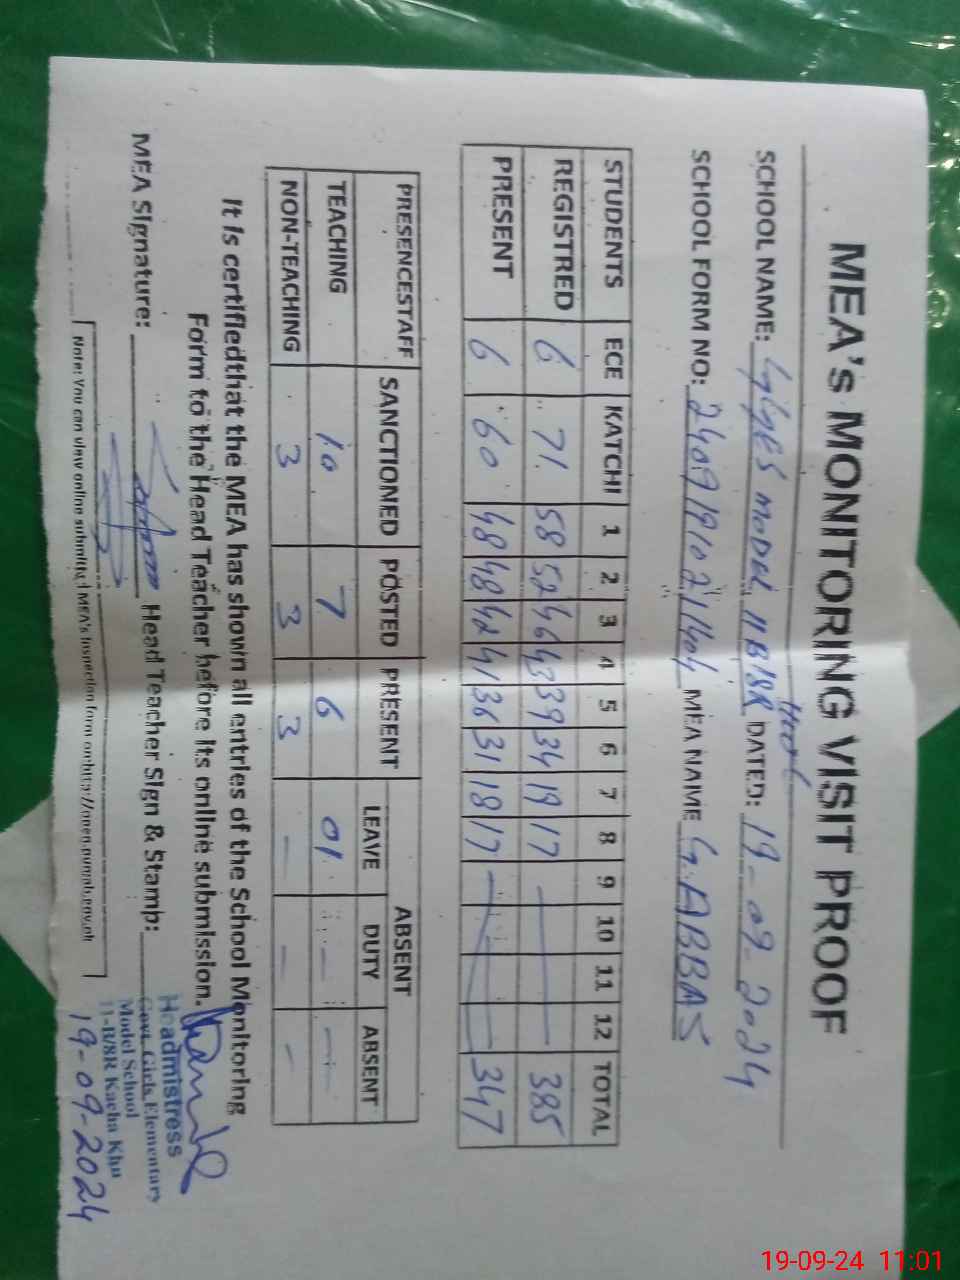 MEA's MONITORING VISIT PROOF
SCHOOL NAME: GGES MODEL 11B/8R DATED: 19-09-2024
SCHOOL FORM NO: MEA NAME G.ABBAS
STUDENTS ECE KATCHI 1 2 3 4 5 6 7 8 9 10 11 12 TOTAL
REGISTRED 6 71 58 52 46 43 39 34 19 17 — 385
PRESENT 6 60 48 48 42 41 36 31 18 17 — 347
PRESENCESTAFF SANCTIONED POSTED PRESENT ABSENT
LEAVE DUTY ABSENT
TEACHING 10 7 6 01 - -
NON-TEACHING 3 3 3 - - -
It is certifiedthat the MEA has shown all entries of the School Monitoring
Form to the Head Teacher before its online submission.
MEA Signature: Head Teacher Sign & Stamp:
Headmistress
Govt. Girls Elementary
Model School
11-B/8R Kacha Khu
19-09-2024
Note: You can view online submitted MEA's Inspection form on https://open.punjab.gov.pk
19-09-24 11:01